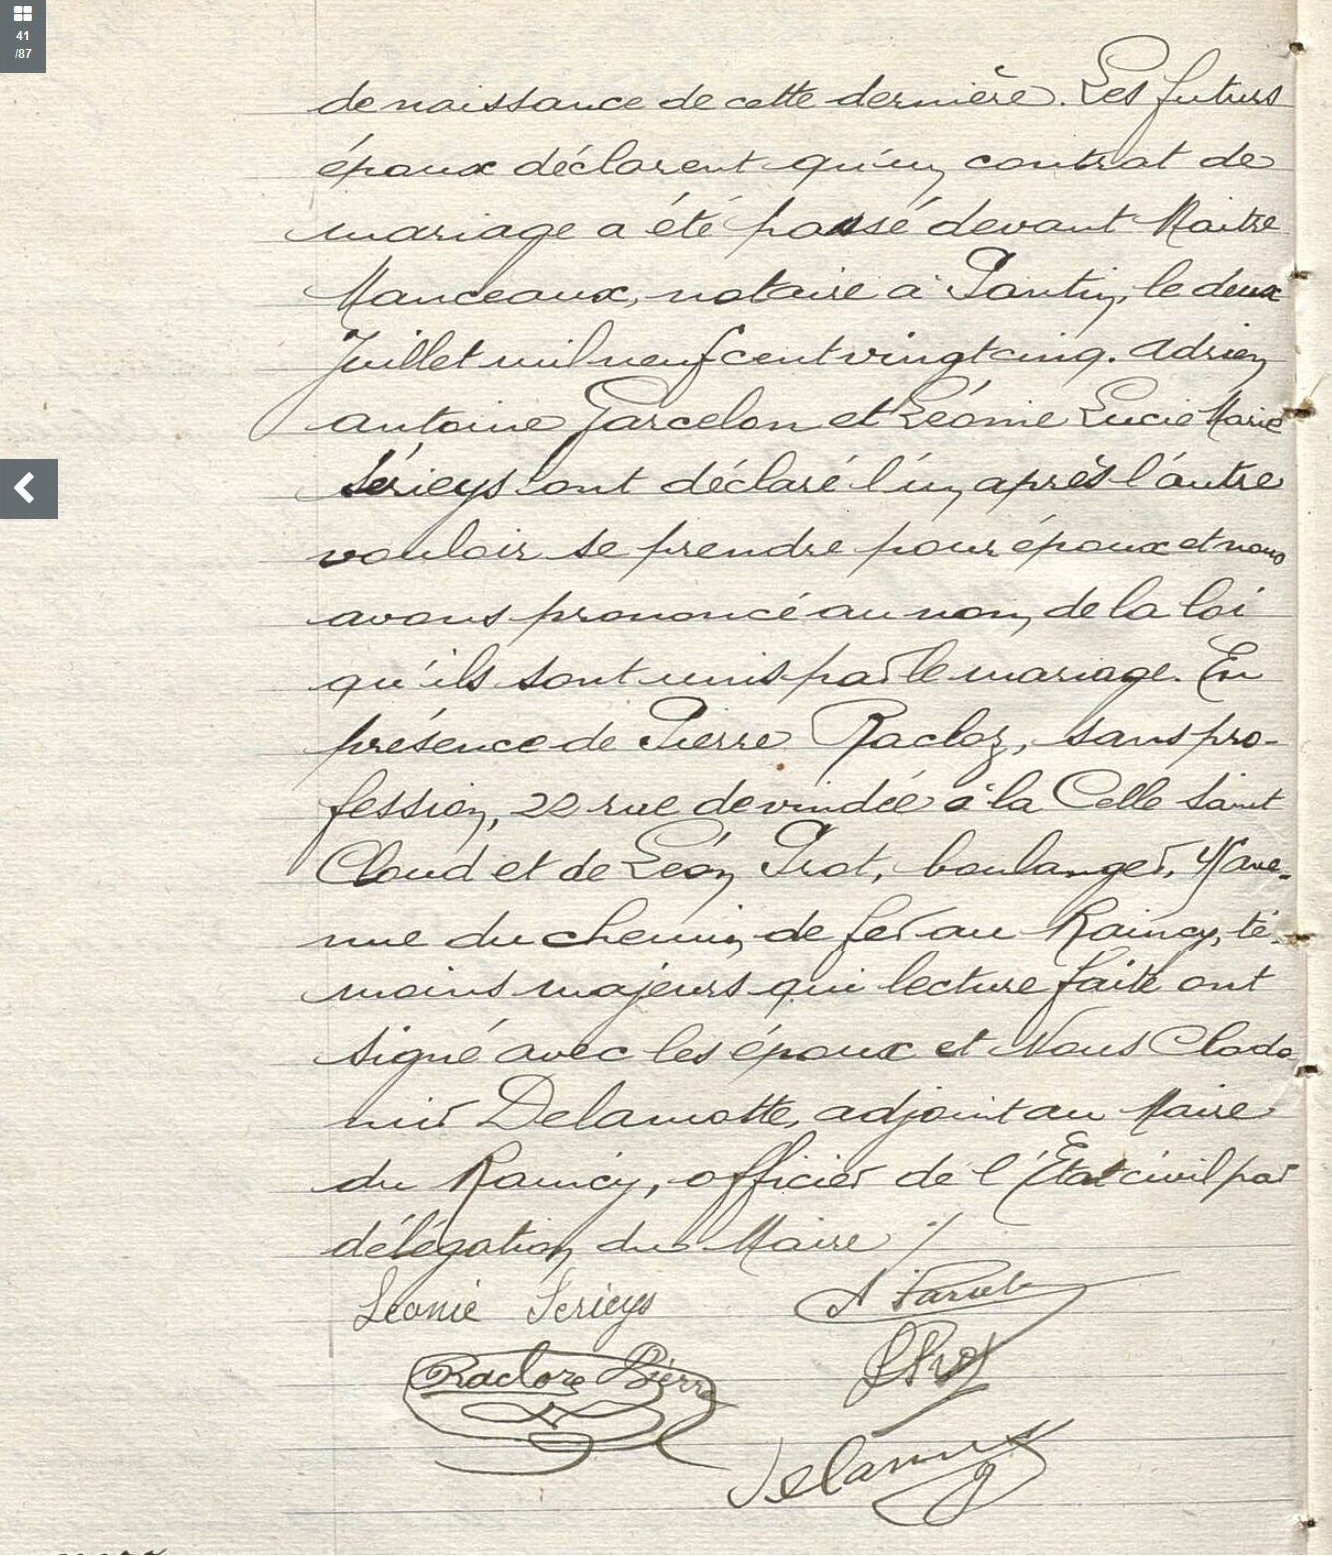 41
/87
de naissance de cette dernière. Les futurs
époux déclarent qu'un contrat de
mariage a été passé devant Maitre
Manceaux, notaire à Pantin, le deux
Juillet mil neuf cent vingt cinq. Adrien
Antoine Farcelon et Léonie Lucie Marie
Sérieys ont déclaré l'un après l'autre
vouloir se prendre pour époux et nous
avons prononcé au nom de la loi
qu'ils sont unis par le mariage. En
présence de Pierre Racloz, sans pro-
fession, 22 rue de vindée à la Celle Saint
Cloud et de Léon Prot, boulanger, ave-
nue du chemin de fer au Raincy, té-
moins majeurs qui lecture faite ont
signé avec les époux et Nous Clodo
mir Delamotte, adjoint au Maire
du Raincy, officier de l'Etat civil par
délégation du Maire ./.
Léonie Serieys
Racloz Pierre
Prot